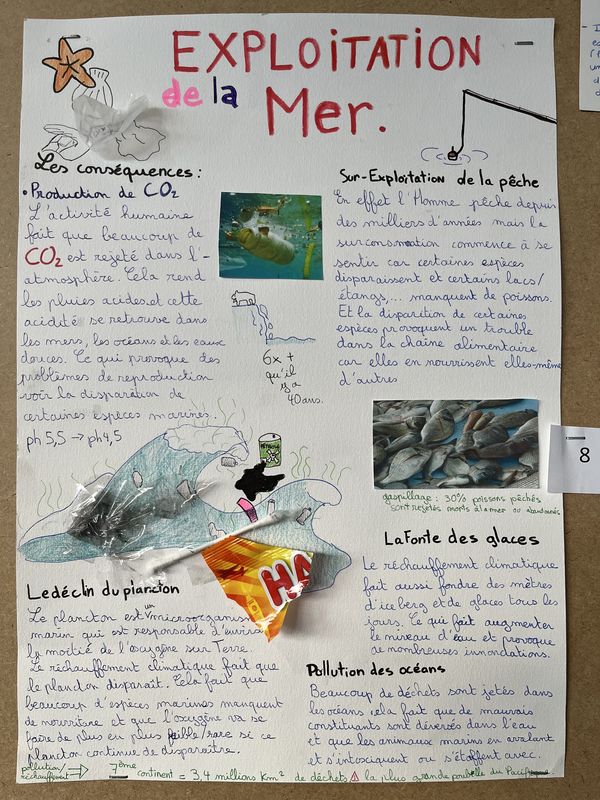 EXPLOITATION
de la
Mer.
Les conséquences :
• Production de CO2
L'activité humaine
fait que beaucoup de
CO2 est rejeté dans l'-
atmosphère. Cela rend
les pluies acides et cette
acidité se retrouve dans
les mers, les océans et les eaux
douces. Ce qui provoque des
problèmes de reproduction
voir la disparation de
certaines espèces marines.
ph 5,5 → ph 4,5
6x +
qu'il
y a
40 ans.
Sur-Exploitation de la pêche
En effet l'Homme pêche depuis
des milliers d'années mais la
surconsomation commence à se
sentir car certaines espèces
disparaissent et certains lacs/
étangs,... manquent de poissons.
Et la disparition de certaines
espèces provoquent un trouble
dans la chaîne alimentaire
car elles en nourrissent elles-même
d'autres
gaspillage : 30% poissons pêchés
sont rejetés morts à la mer ou abandonnés
8
HA
La Fonte des glaces
Le réchauffement climatique
fait aussi fondre des mètres
d'iceberg et de glaces tous les
jours. Ce qui fait augmenter
le niveau d'eau et provoque
de nombreuses innondations.
Le déclin du plancton
Le plancton est un microorganism
marin qui est responsable d'environ
la moitié de l'oxygène sur Terre.
Le réchauffement climatique fait que
le plancton disparaît. Cela fait que
beaucoup d'espèces marines manquent
de nourriture et que l'oxygène va se
faire de plus en plus faible/rare si ce
plancton continue de disparaître.
Pollution des océans
Beaucoup de déchets sont jetés dans
les océans, cela fait que de mauvais
constituants sont déversés dans l'eau
et que les animaux marins en avalant
et s'intoxiquent ou s'étoffent avec.
pollution/
réchauffement → 7ème continent = 3,4 millions km² de déchets ⚠ la plus grande poubelle du Pacifique